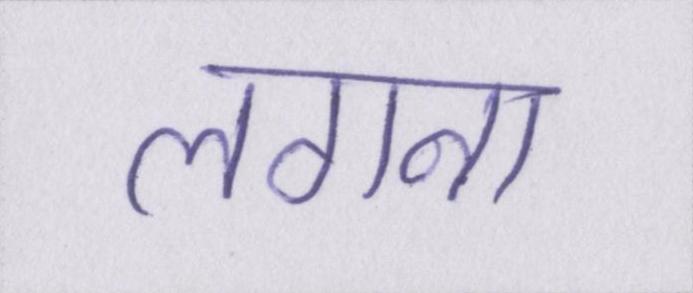 लगना